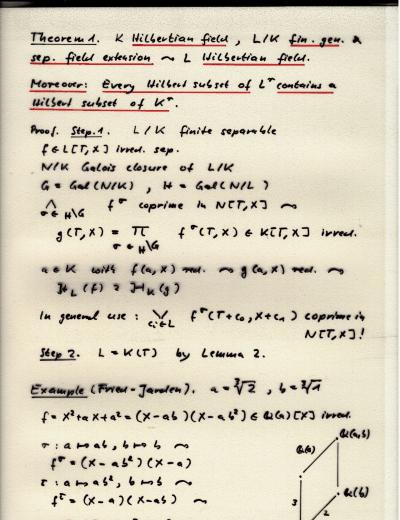 Theorem 1. K Hilbertian field, L/K fin. gen. &
sep. field extension ⤳ L Hilbertian field.
Moreover: Every Hilbert subset of Lʳ contains a
Hilbert subset of Kʳ.
Proof. Step 1. L/K finite separable
f ∈ L[T,X] irred. sep.
N/K Galois closure of L/K
G = Gal(N/K), H = Gal(N/L)
⋀ σ∈H\G f^σ coprime in N[T,X] ⤳
g(T,X) = ∏ σ∈H\G f^σ(T,X) ∈ K[T,X] irred.
a ∈ K with f(a,X) red. ⤳ g(a,X) red. ⤳
H_L(f) ⊇ H_K(g)
In general use: ⋁ cᵢ∈L f^σ(T+c₀, X+c₁) coprime in
N[T,X]!
Step 2. L = K(T) by Lemma 2.
Example (Fried-Jarden). a = ∛2, b = ∛1
f = X²+aX+a² = (X-ab)(X-ab²) ∈ Q(a)[X] irred.
σ: a ↦ ab, b ↦ b ⤳
f^σ = (X-ab²)(X-a)
τ: a ↦ ab², b ↦ b ⤳
f^τ = (X-a)(X-ab) ⤳
Q(a,b)
Q(a)
Q(b)
3
2